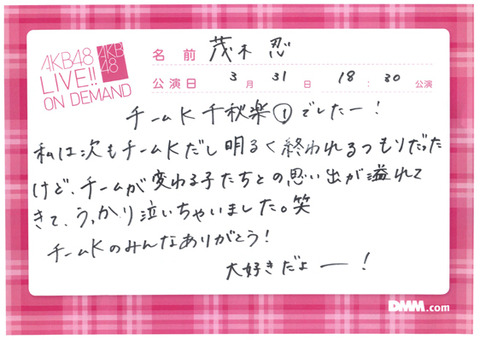 AKB48
LIVE!!
ON DEMAND
AKB
48
名前 茂木忍
公演日 3月31日 18:30公演
チームK千秋楽①でしたー!
私は次もチームKだし明るく終われるつもりだった
けど、チームが変わる子たちとの思い出が溢れて
きて、うっかり泣いちゃいました。笑
チームKのみんなありがとう!
大好きだよー!
DMM.com